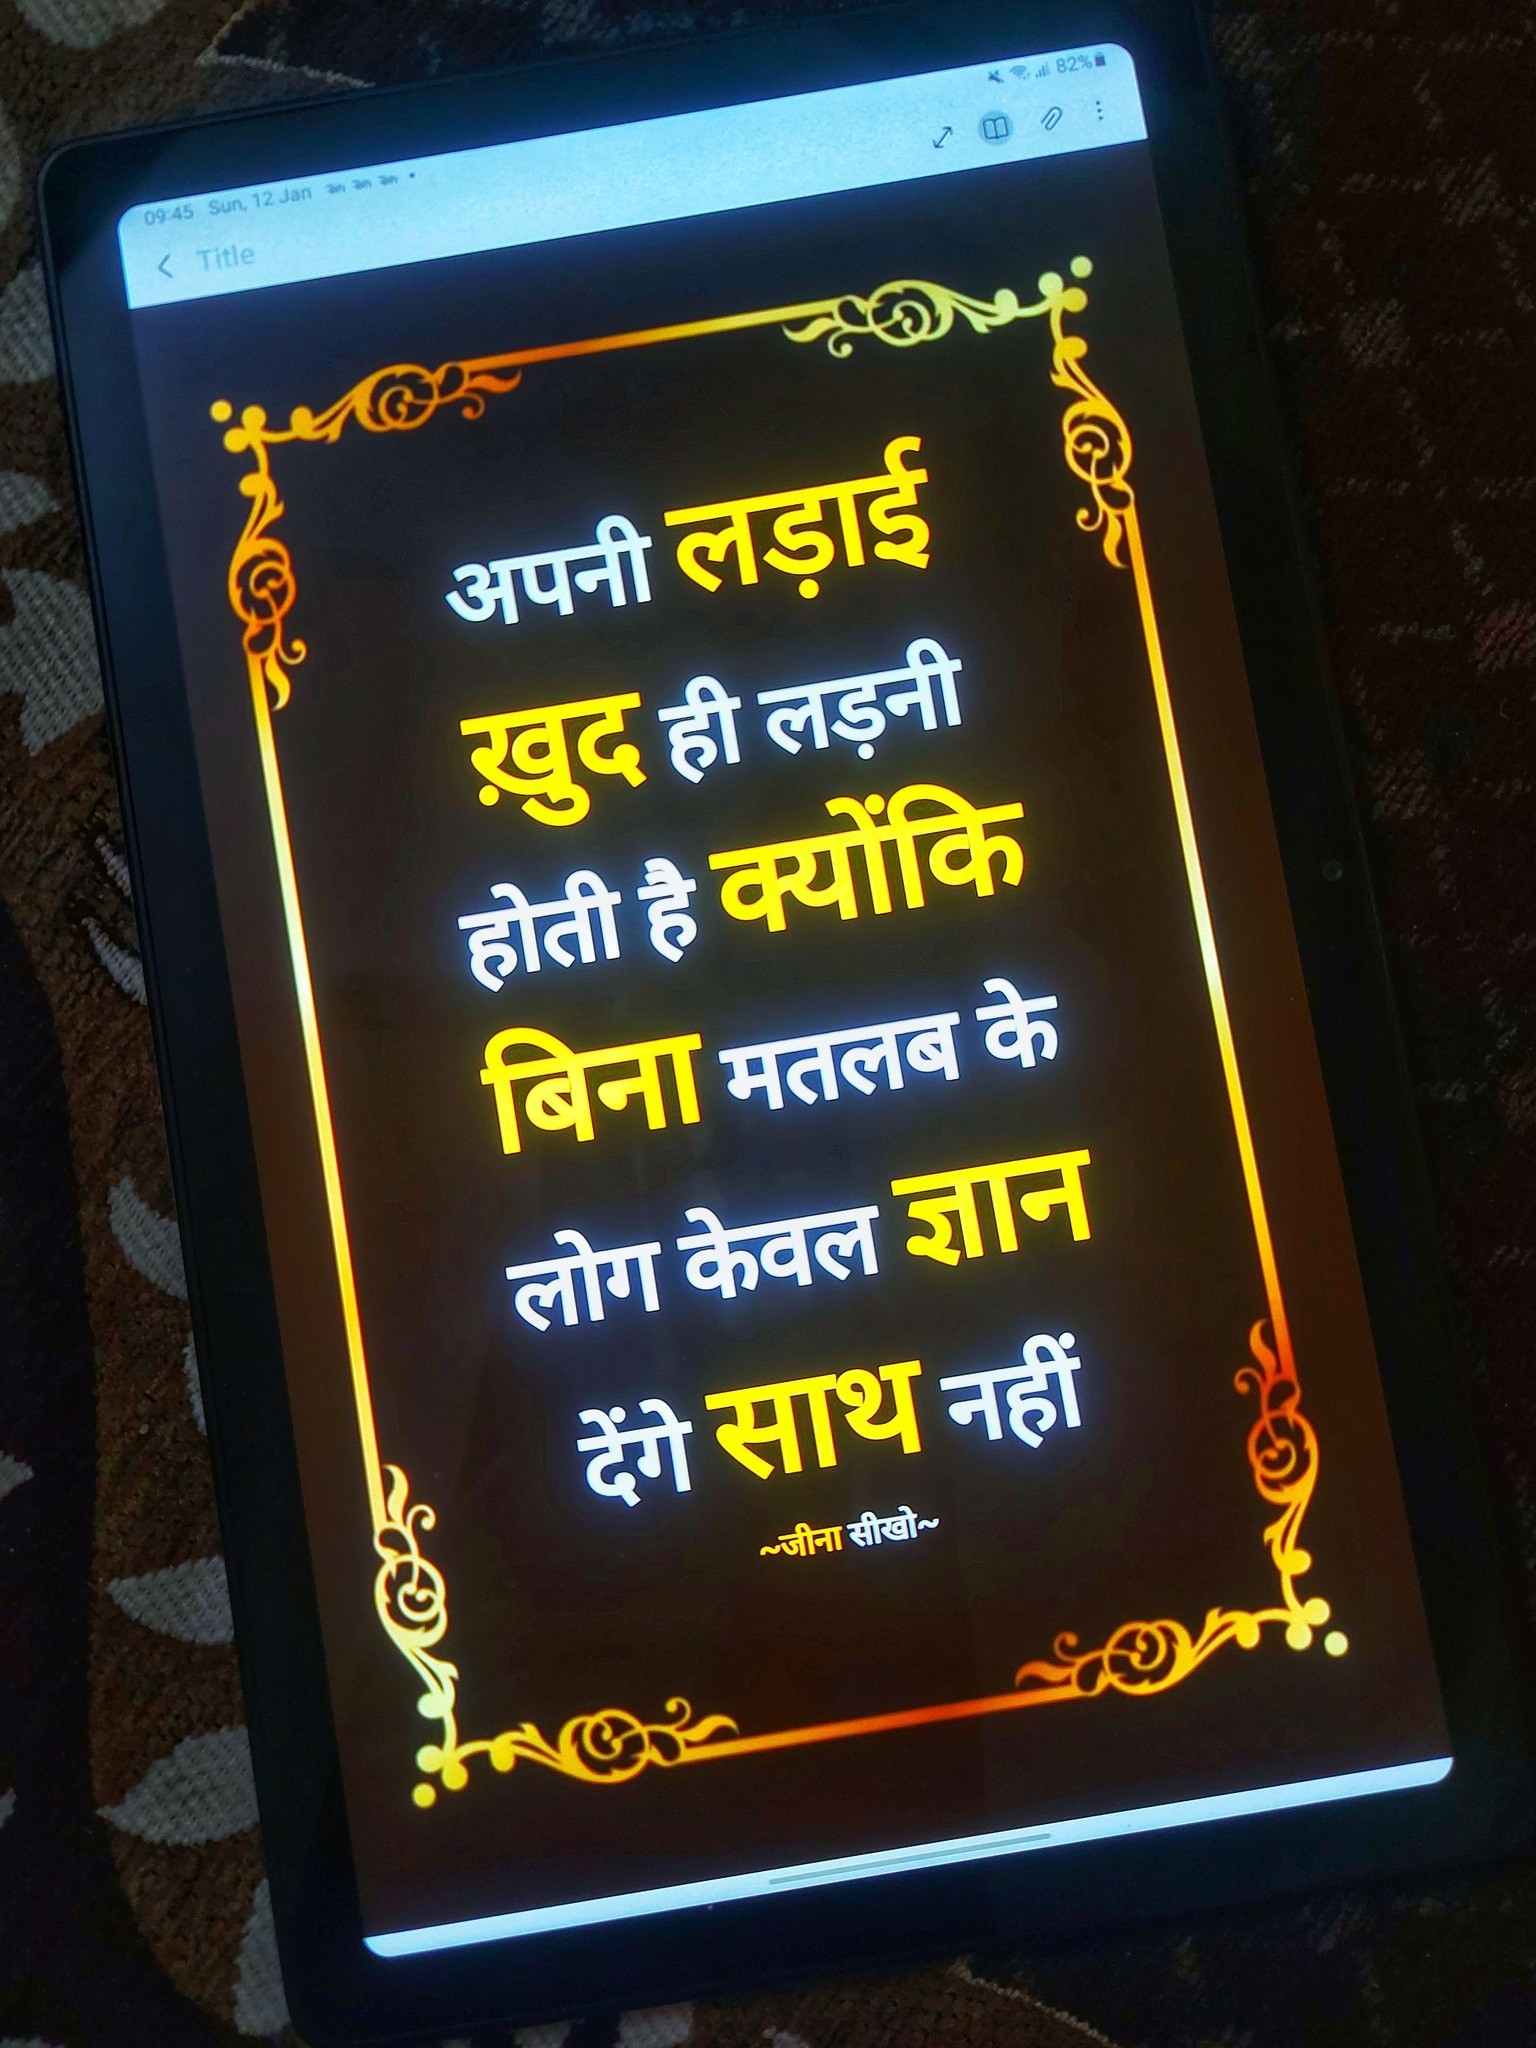 09:45 Sun, 12 Jan
82%
Title
अपनी लड़ाई
ख़ुद ही लड़नी
होती है क्योंकि
बिना मतलब के
लोग केवल ज्ञान
देंगे साथ नहीं
~जीना सीखो~